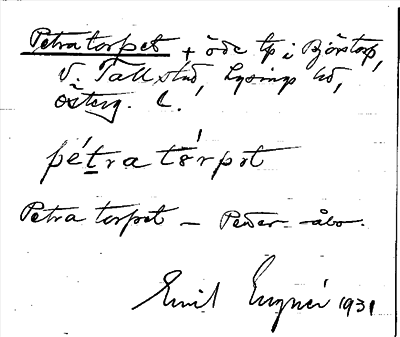 Petratorpet + öde tp i Björstorp,
V. Tollstad, Lysings hd,
österg. l.
pétra tórpət
Petra torpet – Peder – åbo.
Emil 1931